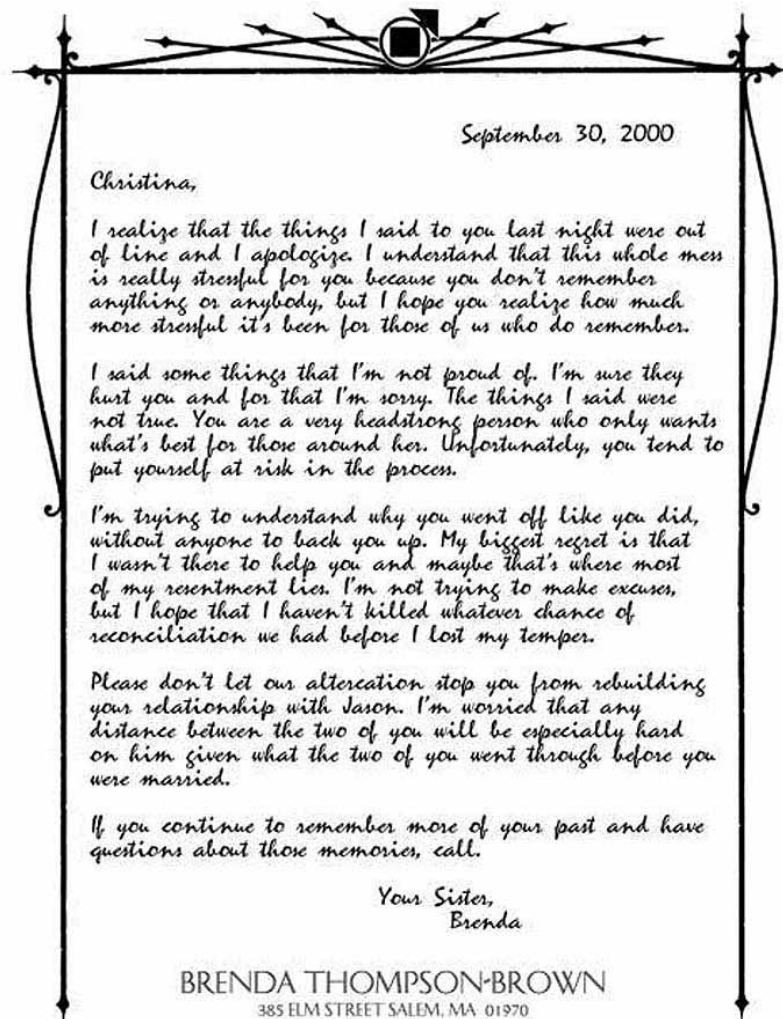 September 30, 2000
Christina,
I realize that the things I said to you last night were out
of line and I apologize. I understand that this whole mess
is really stressful for you because you don't remember
anything or anybody, but I hope you realize how much
more stressful it's been for those of us who do remember.
I said some things that I'm not proud of. I'm sure they
hurt you and for that I'm sorry. The things I said were
not true. You are a very headstrong person who only wants
what's best for those around her. Unfortunately, you tend to
put yourself at risk in the process.
I'm trying to understand why you went off like you did,
without anyone to back you up. My biggest regret is that
I wasn't there to help you and maybe that's where most
of my resentment lies. I'm not trying to make excuses,
but I hope that I haven't killed whatever chance of
reconciliation we had before I lost my temper.
Please don't let our altercation stop you from rebuilding
your relationship with Jason. I'm worried that any
distance between the two of you will be especially hard
on him given what the two of you went through before you
were married.
If you continue to remember more of your past and have
questions about those memories, call.
Your Sister,
Brenda
BRENDA THOMPSON-BROWN
385 ELM STREET SALEM, MA 01970